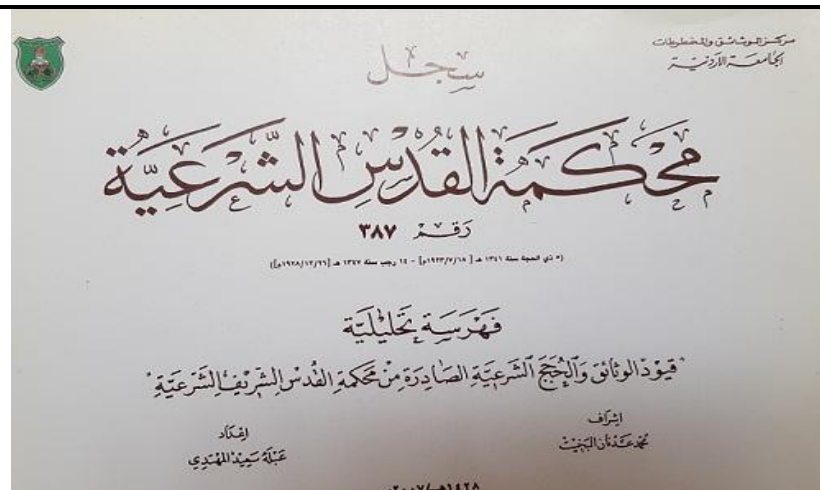 مركز الوثائق والمخطوطات
الجامعة الأردنية
سجل
محكمة القدس الشرعية
رقم ٣٨٧
(٥ ذي الحجة سنة ١٣٤١ هـ [١٩٢٣/٧/١٨م] - ١٤ رجب سنة ١٣٤٧ هـ [١٩٢٨/١٢/٢٦م])
فهرسة تحليلية
"قيود الوثائق والحجج الشرعية الصادرة من محكمة القدس الشريف الشرعية"
اشراف
محمد عدنان البخيت
اعداد
عبلة سعيد المهتدي
١٤٢٨هـ/٢٠٠٧م